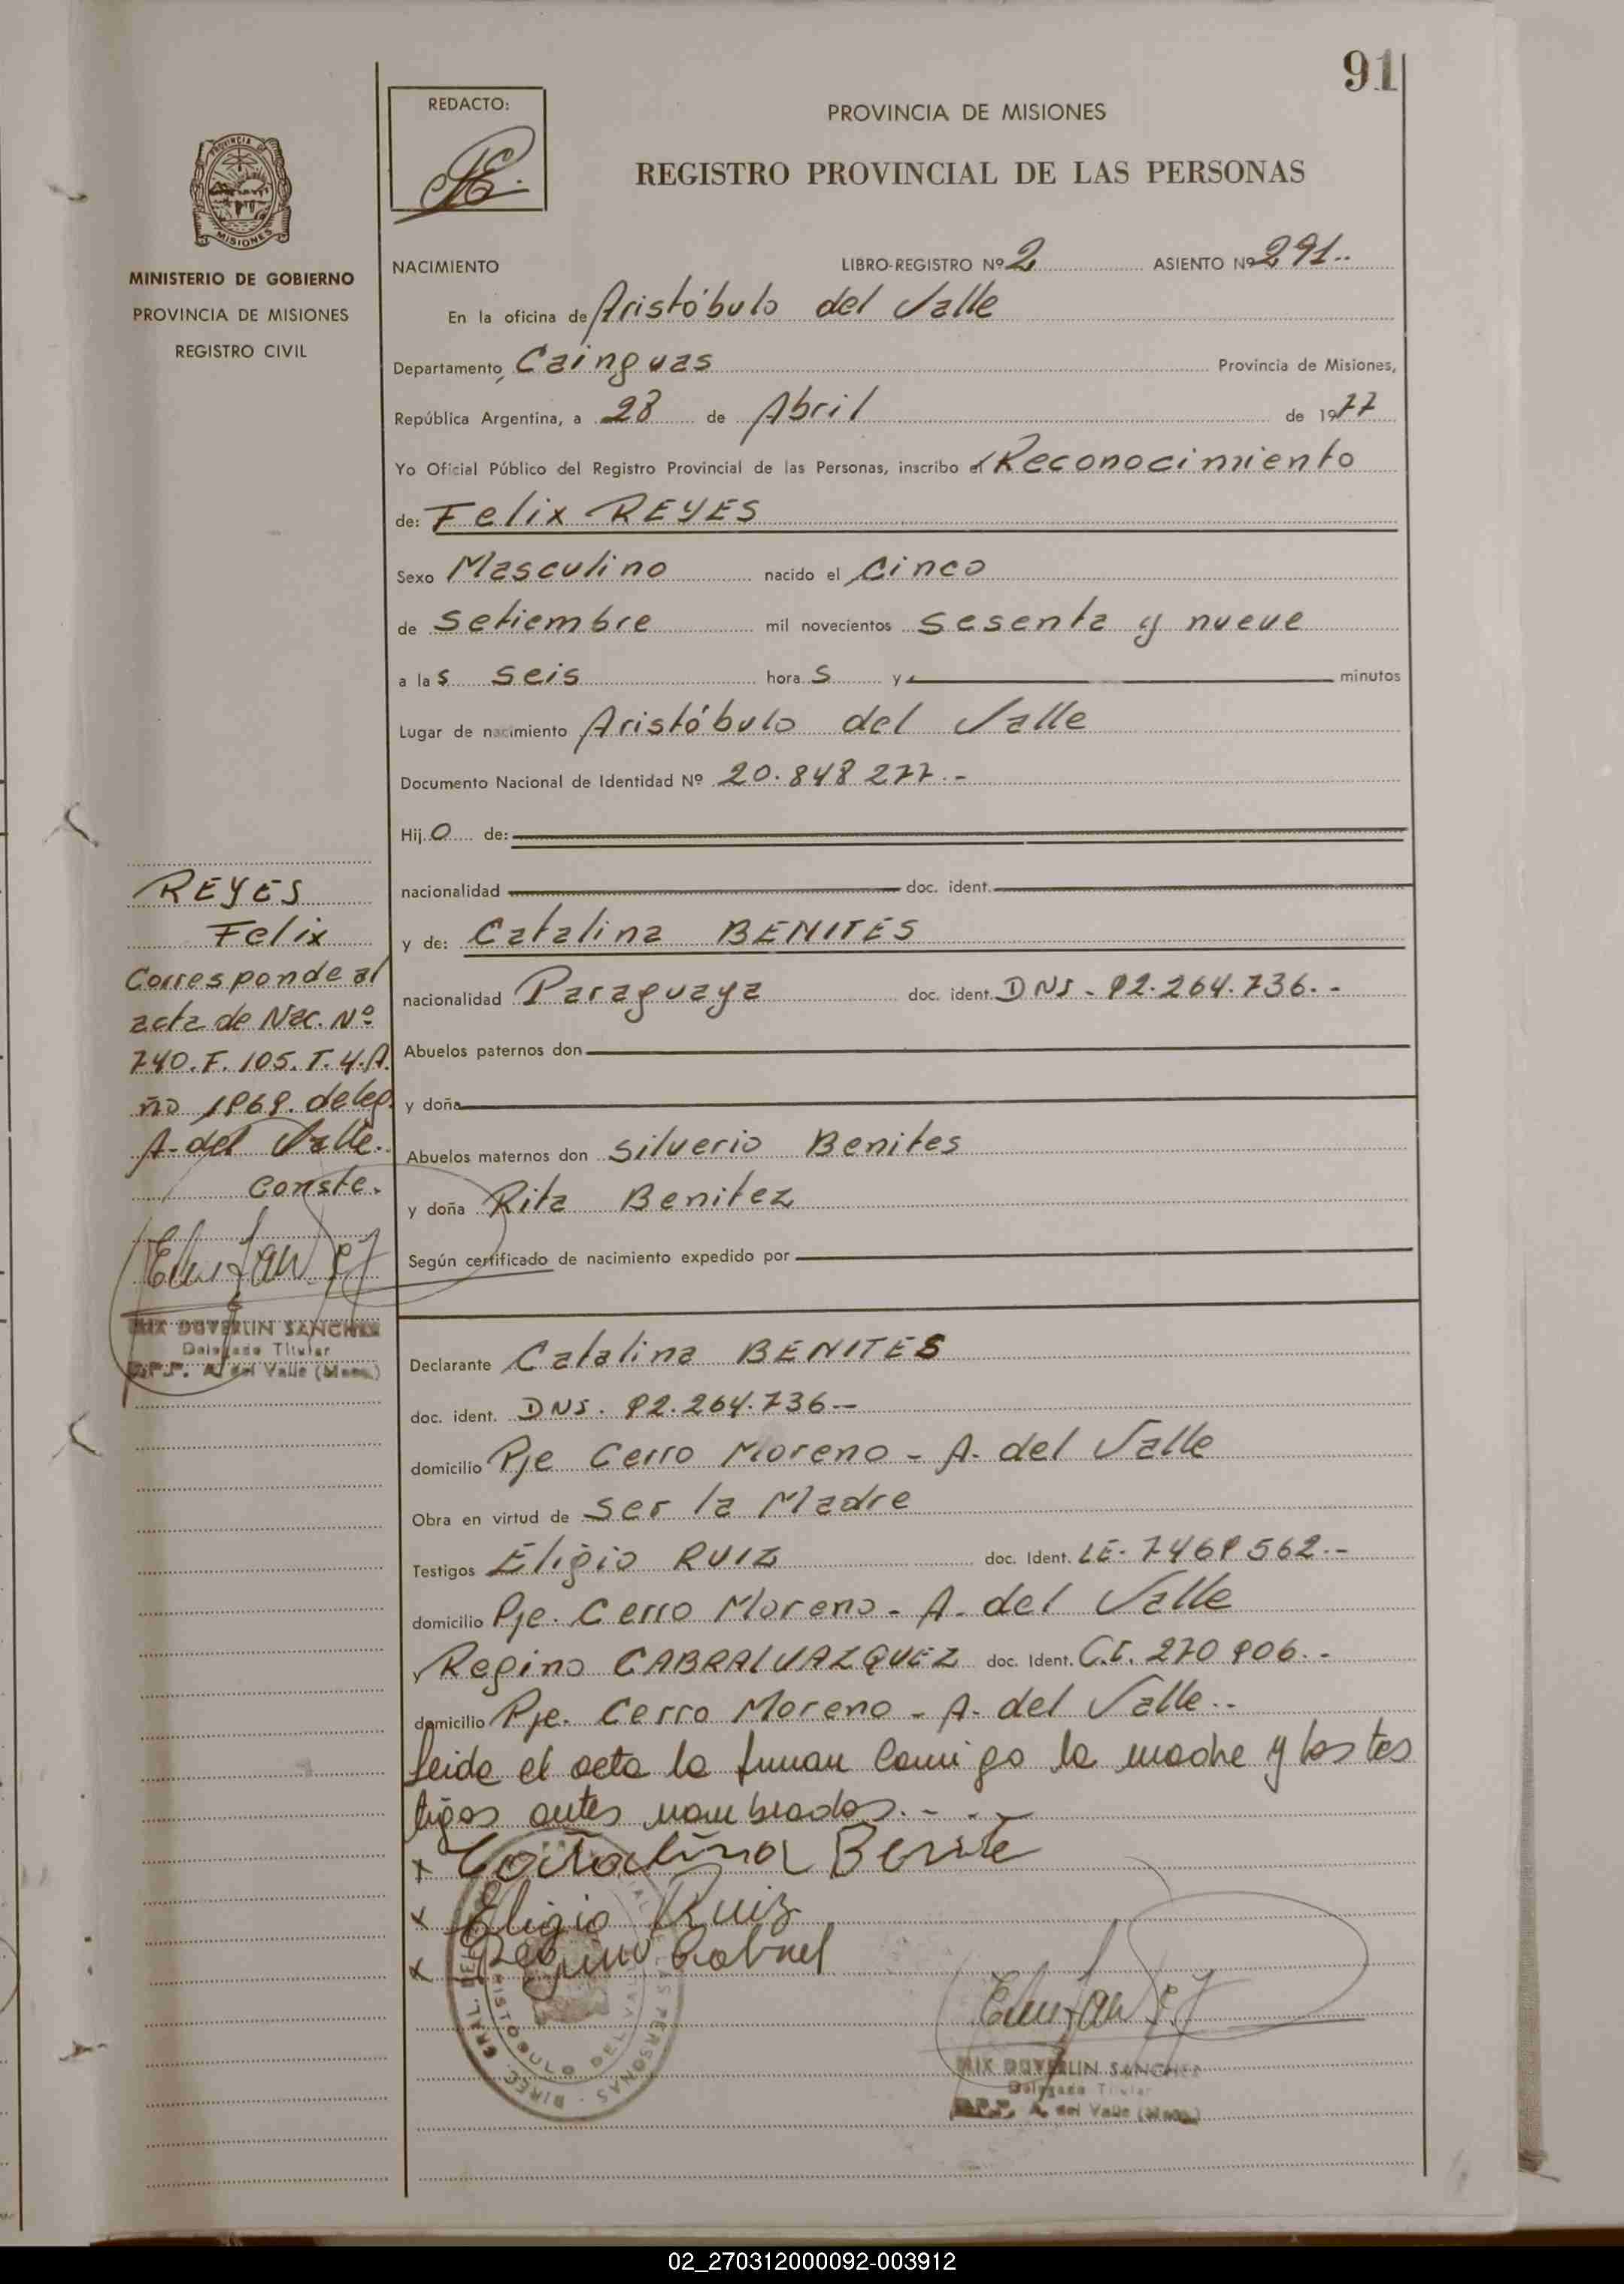 91
REDACTO:
PROVINCIA DE MISIONES
REGISTRO PROVINCIAL DE LAS PERSONAS
PROVINCIA DE
MISIONES
MINISTERIO DE GOBIERNO
PROVINCIA DE MISIONES
REGISTRO CIVIL
NACIMIENTO LIBRO-REGISTRO Nº 2 ASIENTO Nº 291..
En la oficina de Aristóbulo del Valle
Departamento, Cainguas Provincia de Misiones,
República Argentina, a 28 de Abril de 1977
Yo Oficial Público del Registro Provincial de las Personas, inscribo el Reconocimiento
de: Felix REYES
Sexo Masculino nacido el Cinco
de Setiembre mil novecientos sesenta y nueve
a las seis horas y minutos
Lugar de nacimiento Aristóbulo del Valle
Documento Nacional de Identidad Nº 20.848 277.-
Hijo de:
nacionalidad doc. ident.
y de: Catalina BENITES
nacionalidad Paraguaya doc. ident. DNI - 92.264.736.-
Abuelos paternos don
y doña
Abuelos maternos don Silverio Benites
y doña Rita Benitez
Según certificado de nacimiento expedido por
REYES
Felix
Corresponde al
acta de Nac. Nº
740. F. 105. T. 4. A
ño 1969. deleg.
A. del Valle.
Conste.
DUVERLIN SANCHEZ
Delegado Titular
A. del Valle (Mnes.)
Declarante Catalina BENITES
doc. ident. DNI. 92.264.736-
domicilio Pje Cerro Moreno - A. del Valle
Obra en virtud de ser la Madre
Testigos Eligio RUIZ doc. Ident. LE. 7469562.-
domicilio Pje. Cerro Moreno - A. del Valle
y Regino CABRAL VAZQUEZ doc. Ident. C.I. 270 906.-
domicilio Pje. Cerro Moreno - A. del Valle.-
Leida el acta la firman conmigo la madre y los tes
tigos antes nombrados.-
x Catalina Benite
x Eligio Ruiz
x Regino Cabral
ARISTOBULO DEL VALLE
DUVERLIN SANCHEZ
Delegado Titular
A. del Valle (Mnes.)
02_270312000092-003912